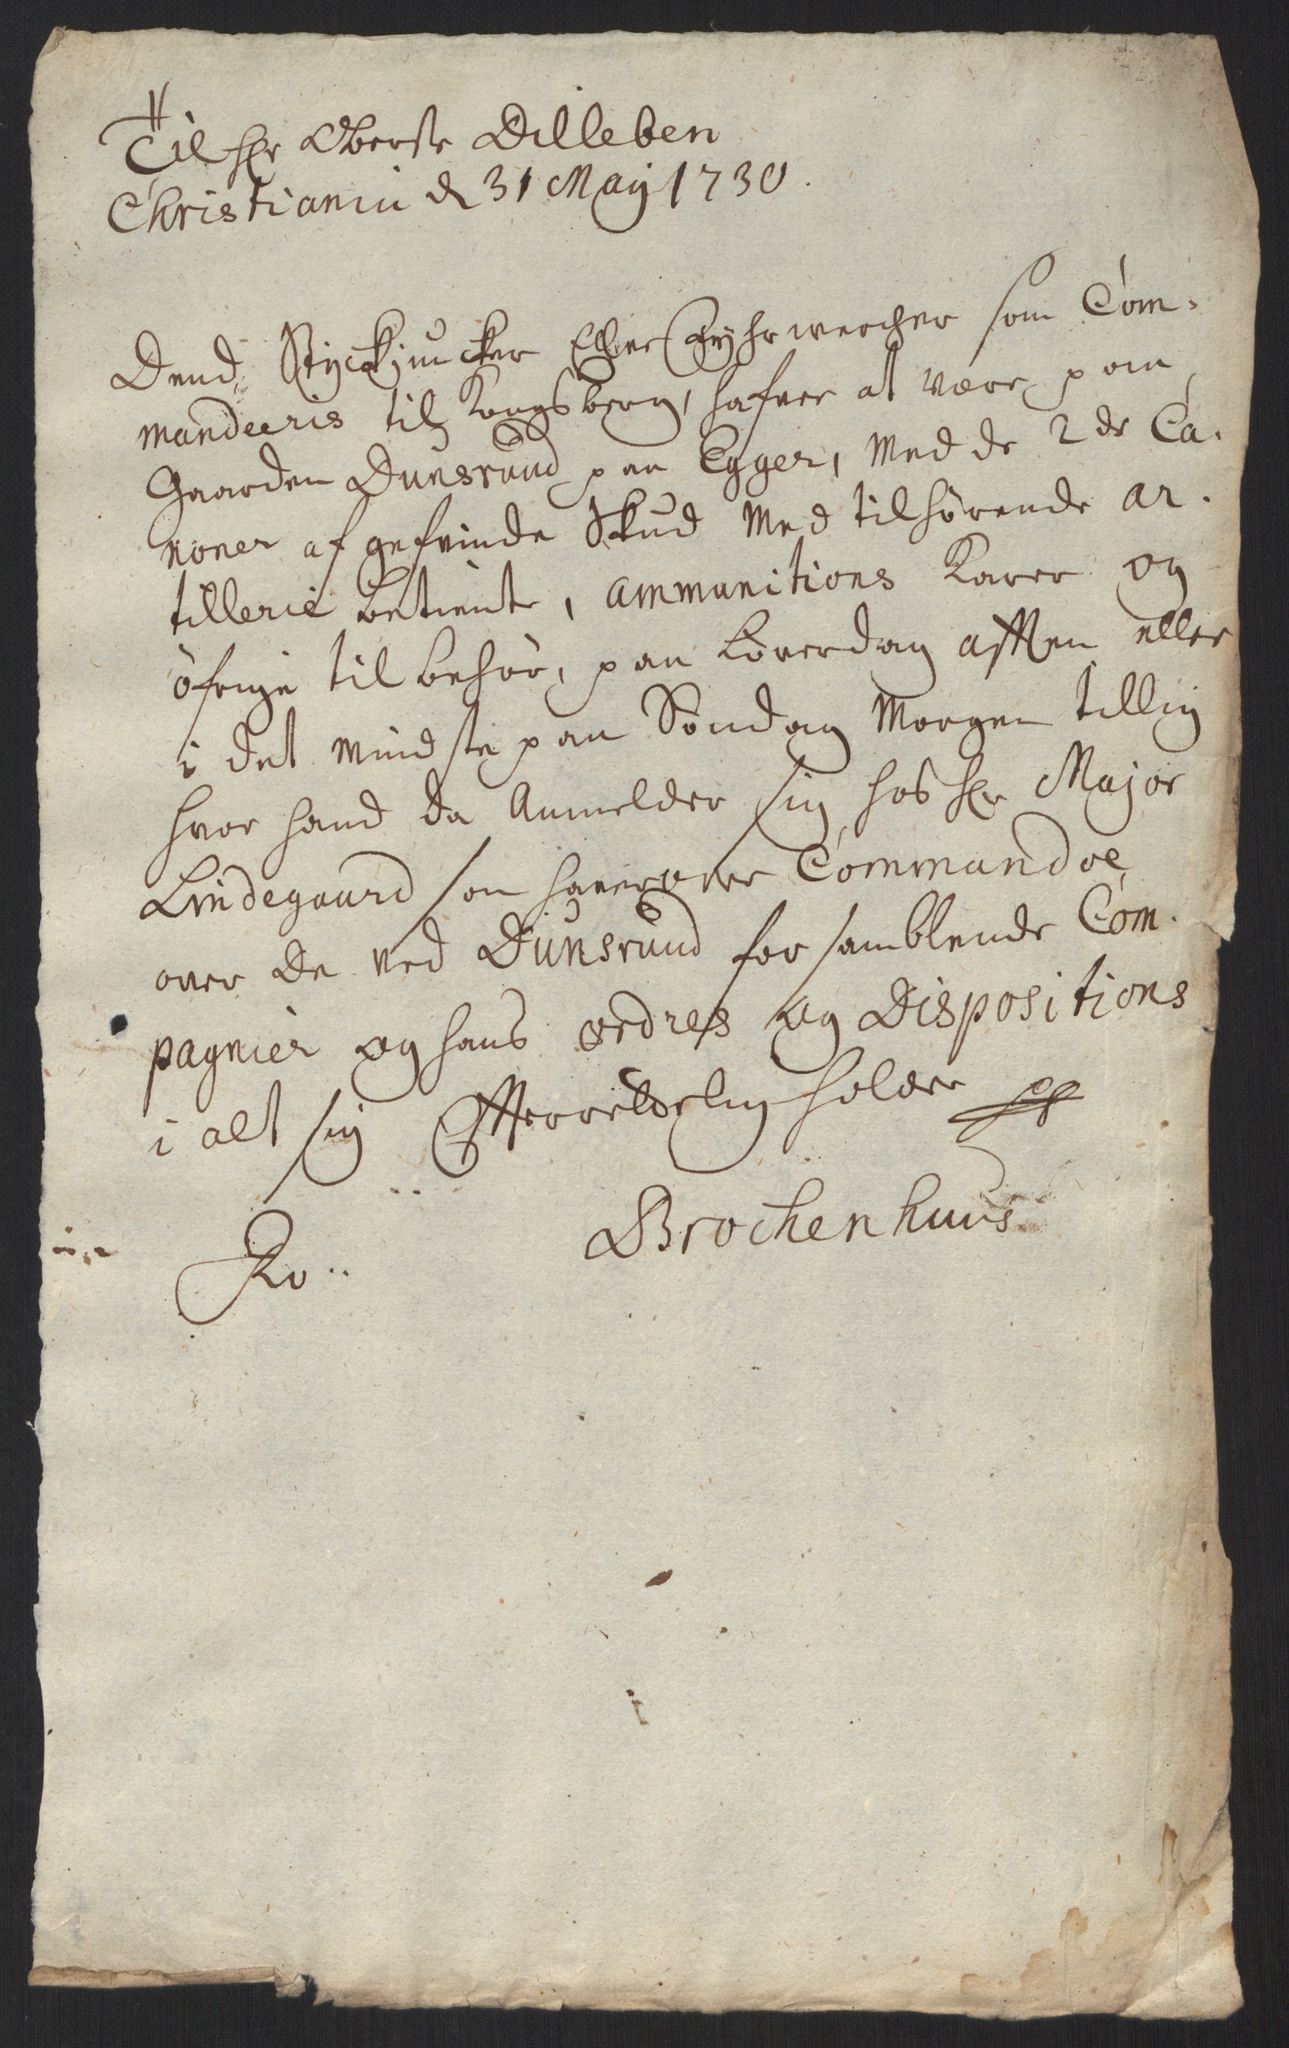 Til hr Oberste Dilleben
Christiania d 31 Maij 1730.
Dend Styckjuncker Eller Fyhrwercher som Com-
manderis til Kongsberg, hafver at være paa
Gaarden Dunsrund paa Egger, med de 2de Ca-
noner af gesvinde Skud med tilhørende ar-
tillerie betiente, ammunitions Karer og
öfrige tilbehör, paa Löverdag afften eller
i det mindste paa Söndag Morgen tillig
hvor hand da Anmelder sig hos hr Major
Lindegaard som haver Commandoe
over de ved Dunsrund forsamblende Com-
pagnier og hans ordres og Dispositions
i alt sig Efterrettelig holder
Brochenhuus